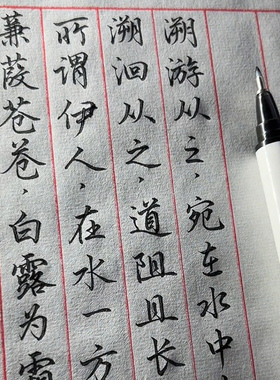 蒹葭苍苍，白露为霜
所谓伊人，在水一方
溯洄从之，道阻且长
溯游从之，宛在水中